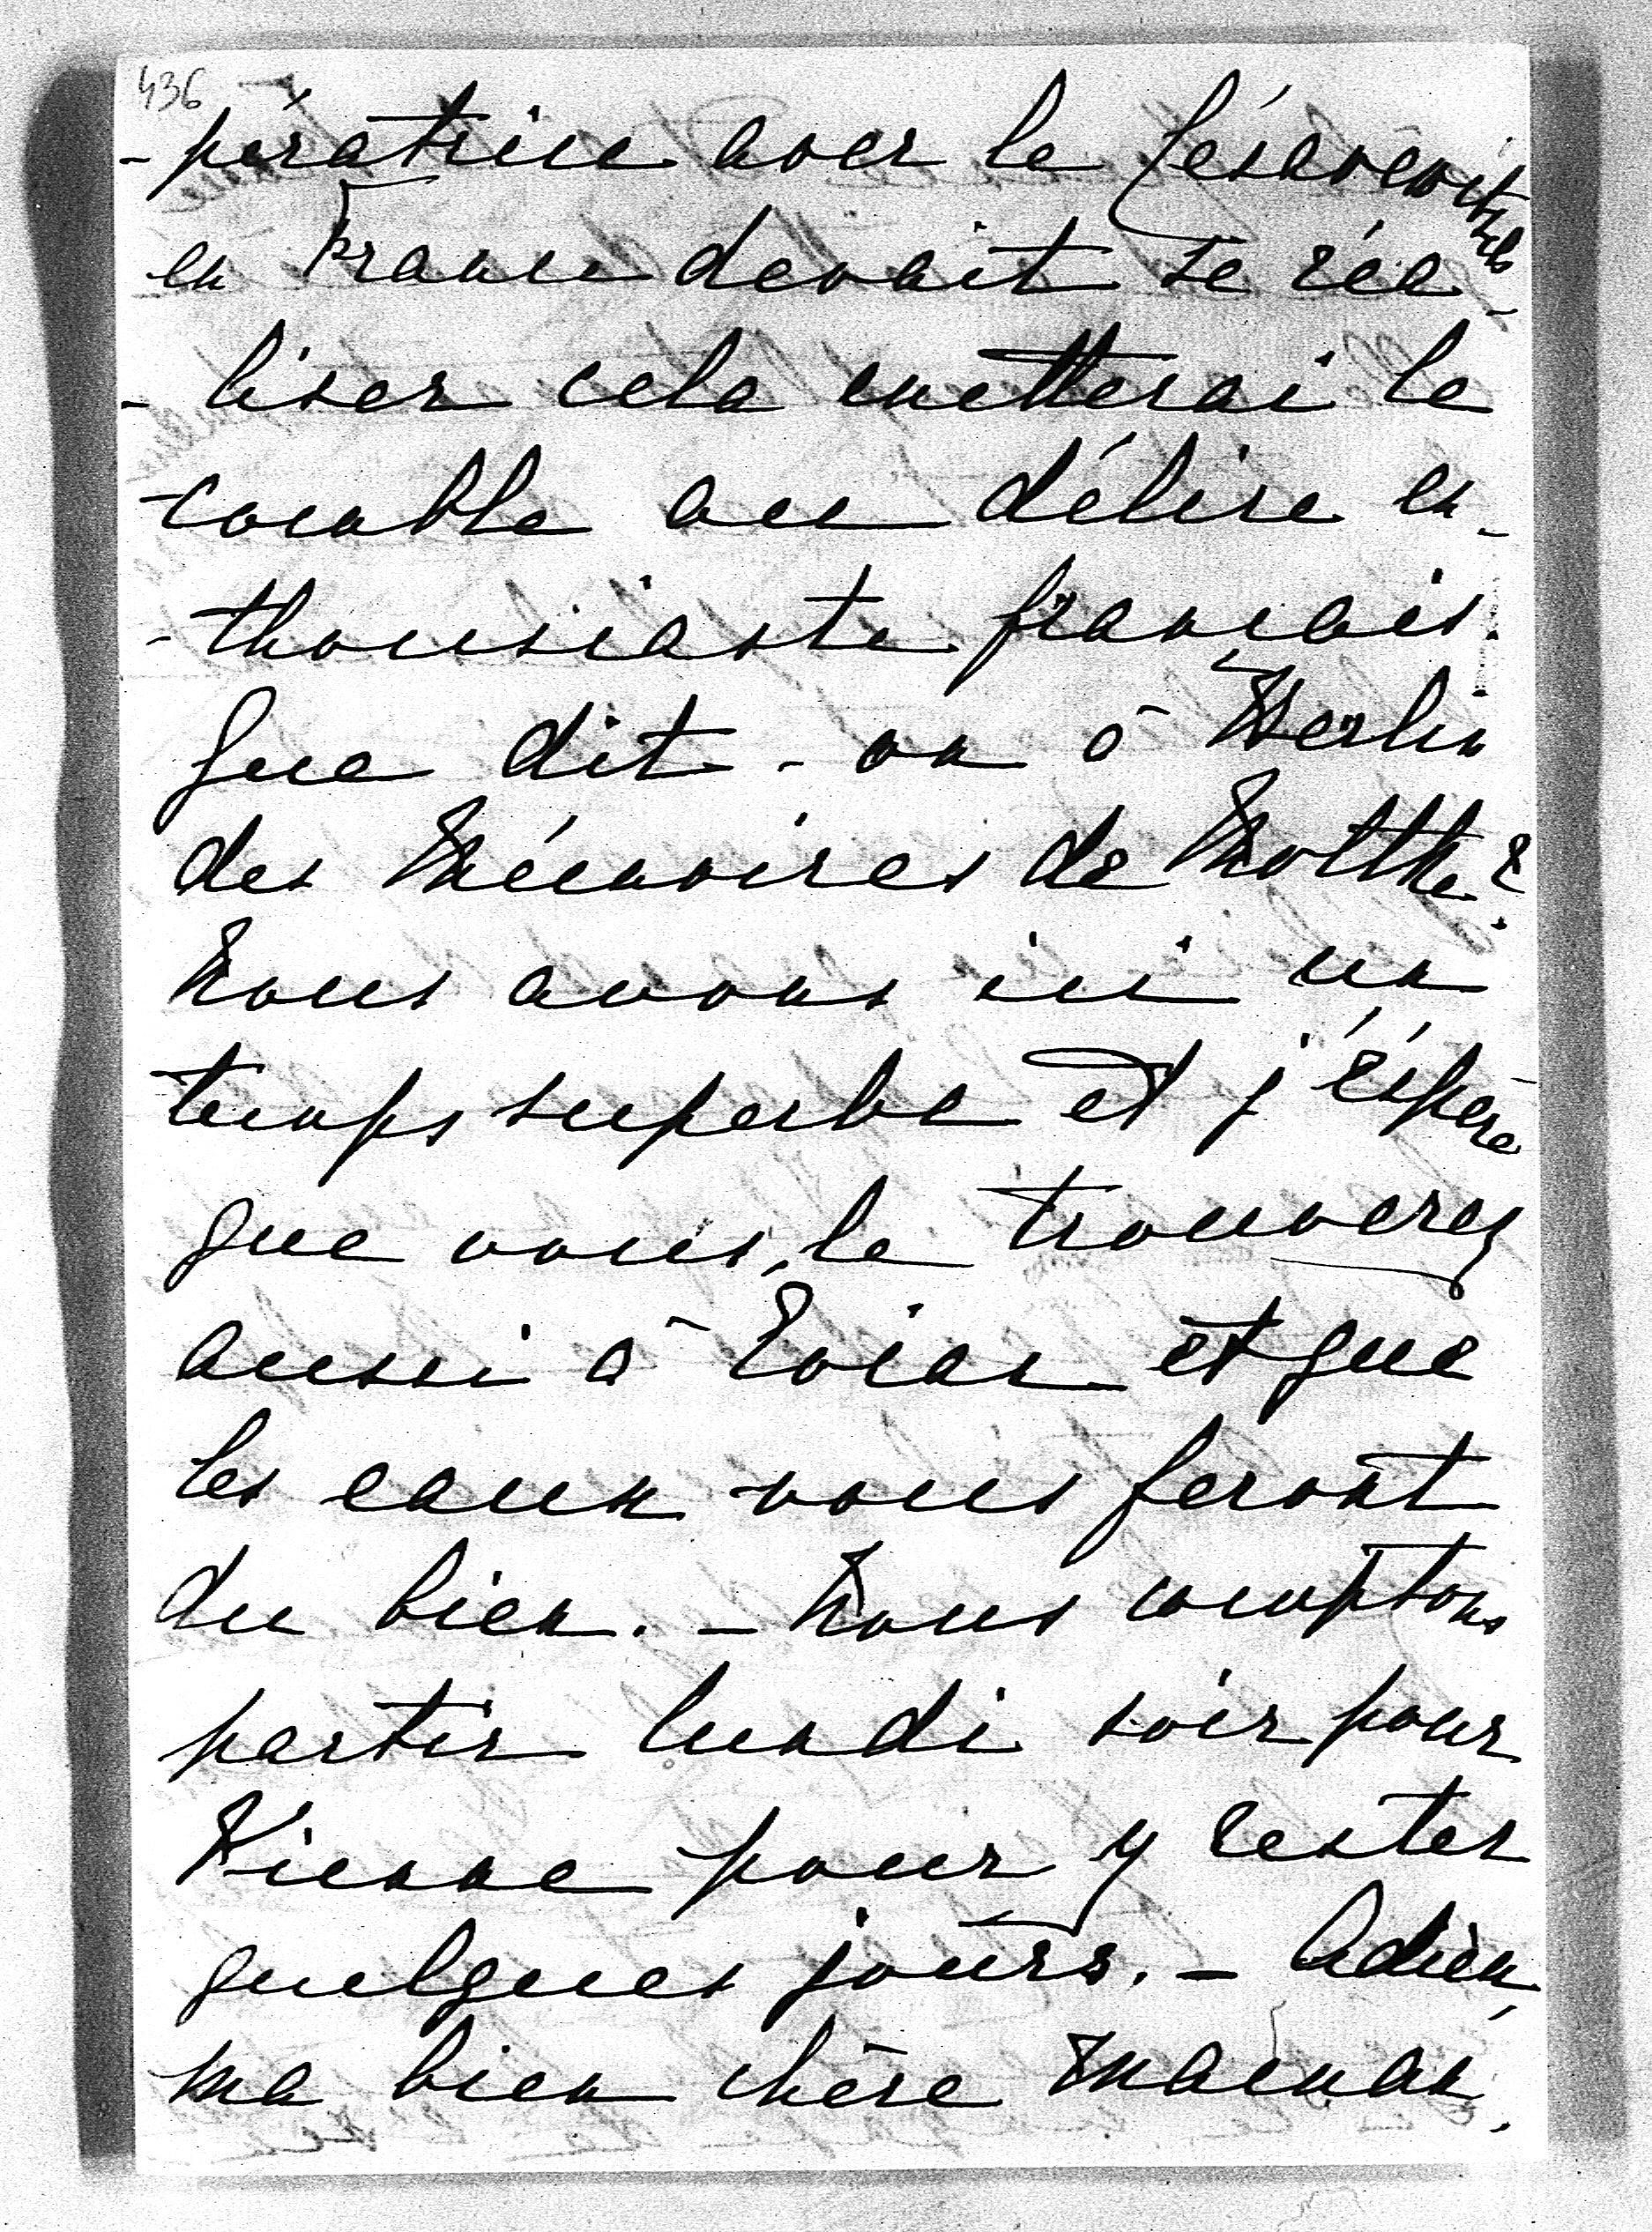 436
-pératrice avec le Césarevitch
en France devait se réa-
-liser cela metterai le
comble au délire en-
-thousiaste français.
Que dit-on à Berlin
des Mémoires de Moltke?
Nous avons ici un
temps superbe et j'éspère
que vous le trouverez
aussi à Evian et que
les eaux vous feront
du bien. - Nous comptons
partir lundi soir pour
Vienne pour y rester
quelques jours. - Adieu,
ma bien chère Maman,